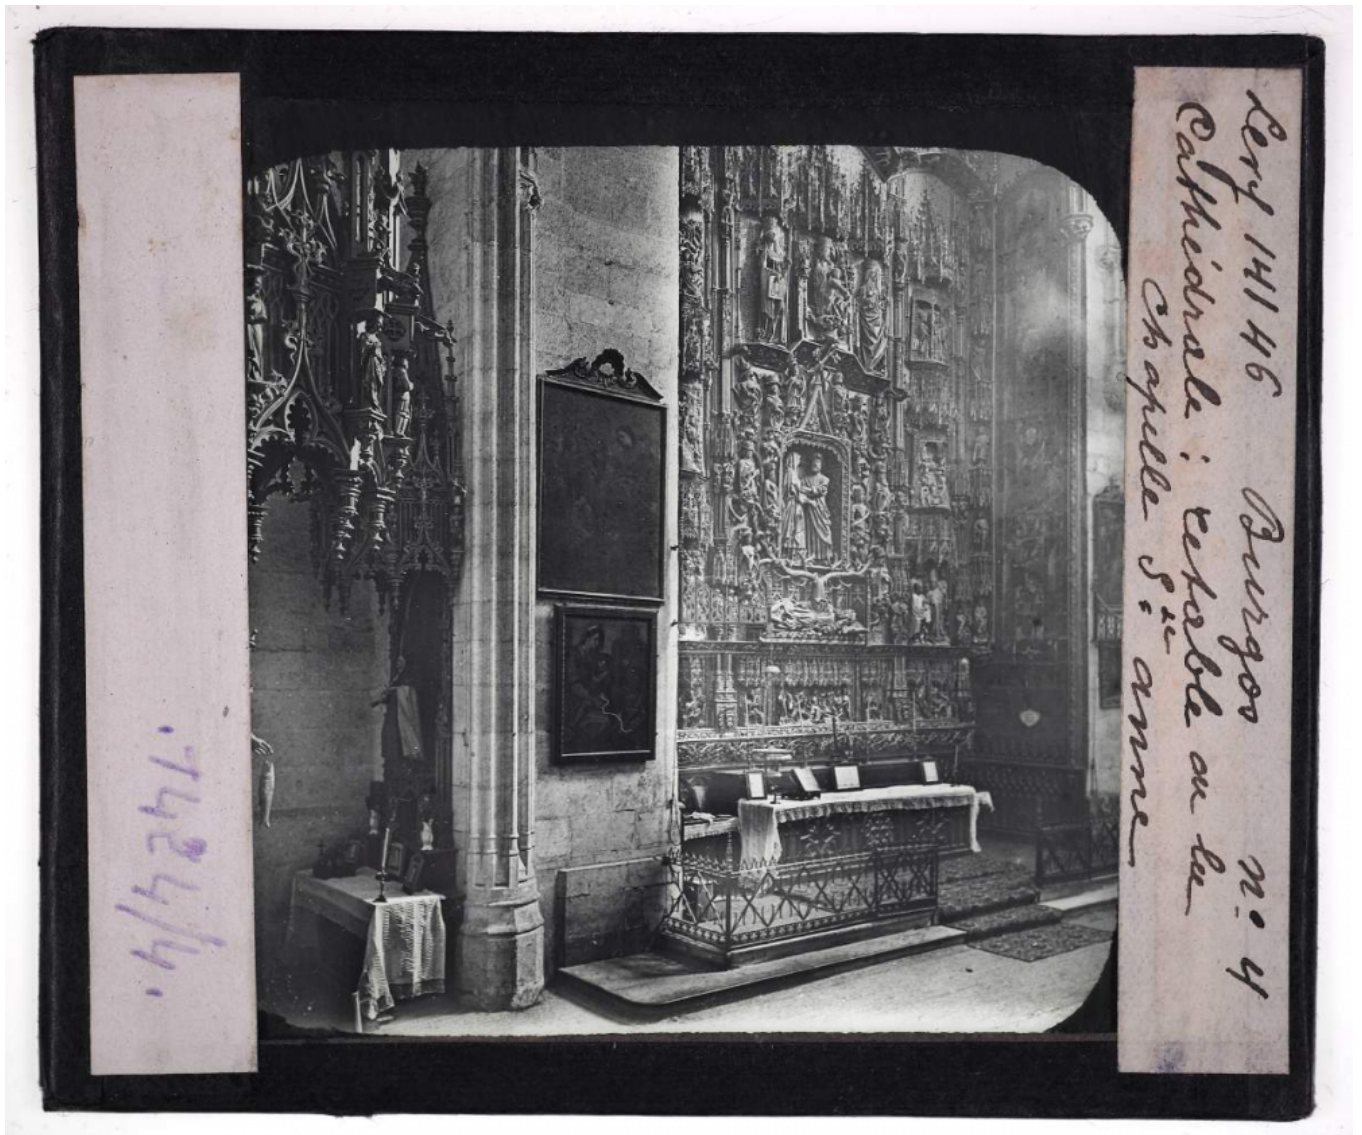 Levy 14146 Burgos nº 4
Cathédrale : retable de la
Chapelle Ste anne
T424/4.